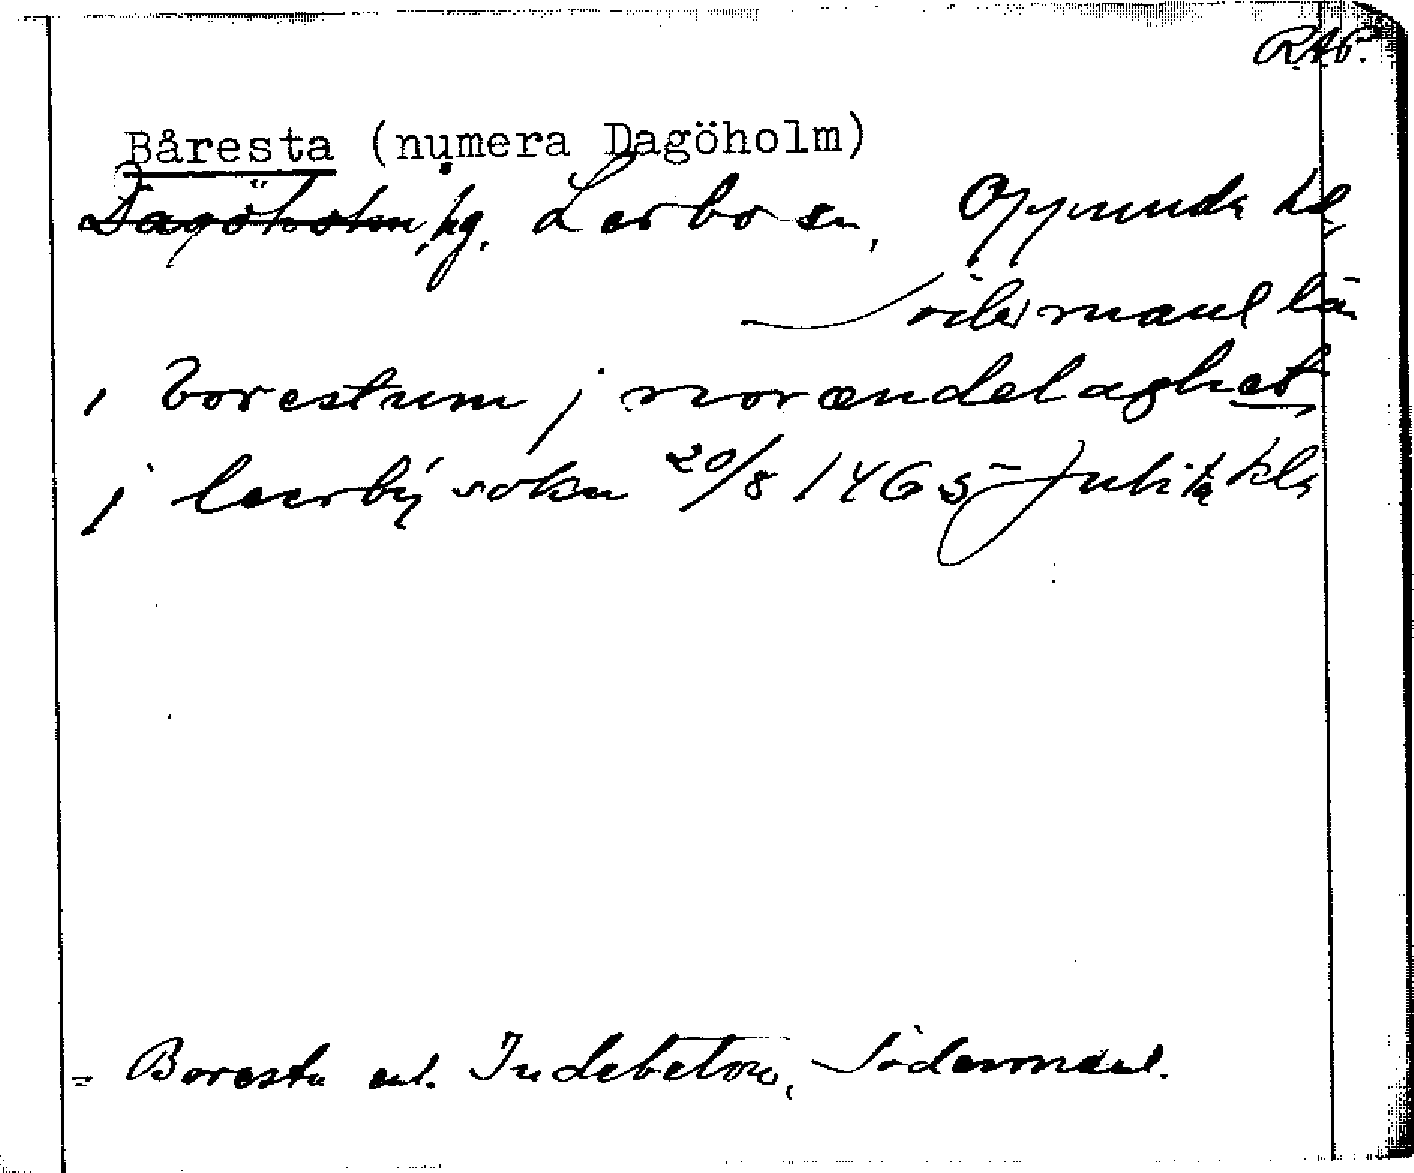 R.A.P.
Båresta (numera Dagöholm)
Dagöholm, hg. Lerbo sn, Oppunda hd,
Södermanl län
i borestum j norændelaghet
j lærbý sokn 20/8 1465 Julita kls
= Boresta enl. Indebetou, Södermanl.